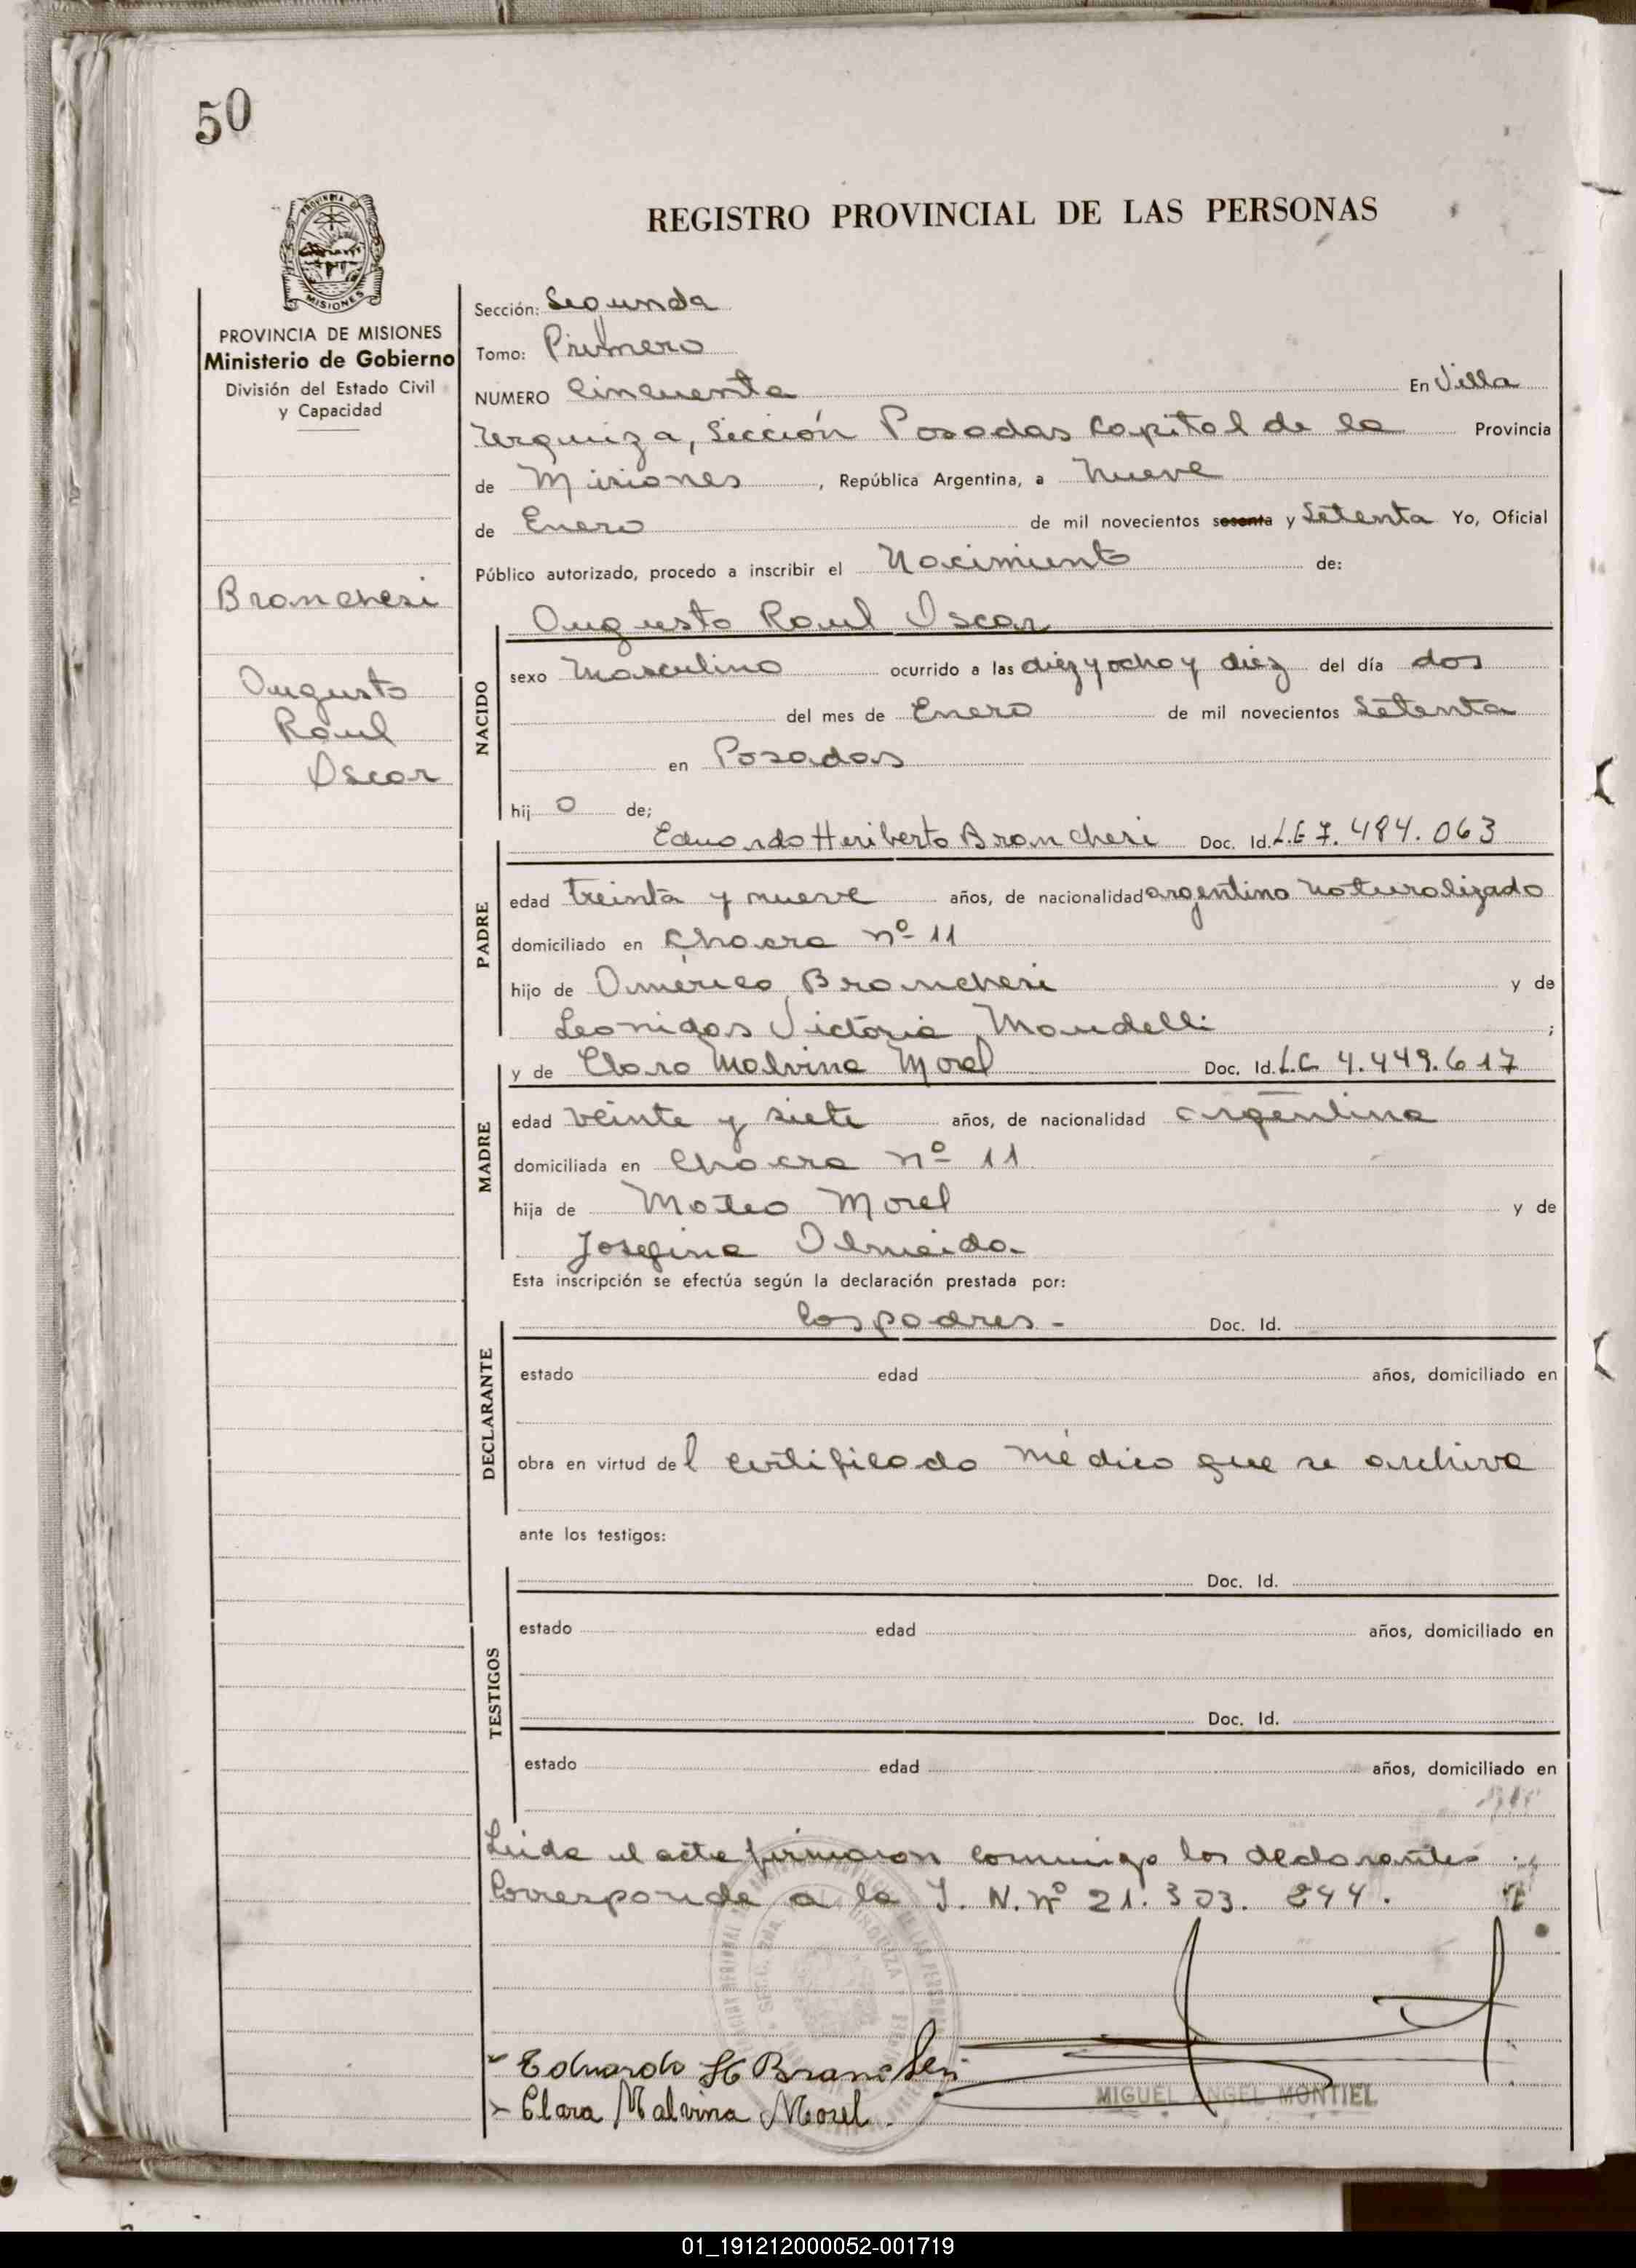 50
PROVINCIA DE
MISIONES
REGISTRO PROVINCIAL DE LAS PERSONAS
PROVINCIA DE MISIONES
Ministerio de Gobierno
División del Estado Civil
y Capacidad
Brancheri
Augusto
Raul
Oscar
Sección: Segunda
Tomo: Primero
NUMERO Cincuenta En Villa
Urquiza, Sección Posadas Capital de la Provincia
de Misiones, República Argentina, a Nueve
de Enero de mil novecientos sesenta y Setenta Yo, Oficial
Público autorizado, procedo a inscribir el Nacimiento de:
NACIDO
Augusto Raul Oscar
sexo Masculino ocurrido a las diez y ocho y diez del día dos
del mes de Enero de mil novecientos Setenta
en Posadas
hijo de;
PADRE
Eduardo Heriberto Brancheri Doc. Id. L.E 7.484.063
edad treinta y nueve años, de nacionalidad argentino naturalizado
domiciliado en Chacra nº 11
hijo de Américo Brancheri y de
Leonidas Victoria Mandelli;
MADRE
y de Clara Malvina Morel Doc. Id. L.C 4.449.617
edad veinte y siete años, de nacionalidad argentina
domiciliada en Chacra nº 11
hija de Mateo Morel y de
Josefina Olmeido.
Esta inscripción se efectúa según la declaración prestada por:
DECLARANTE
los padres - Doc. Id.
estado edad años, domiciliado en
obra en virtud del certificado médico que se archiva
ante los testigos:
TESTIGOS
Doc. Id.
estado edad años, domiciliado en
Doc. Id.
estado edad años, domiciliado en
Leida el acta firmaron conmigo los declarantes.
Corresponde a la I. N. nº 21.303.244.
Eduardo H Brancheri
Clara Malvina Morel
MIGUEL ANGEL MONTIEL
01_191212000052-001719